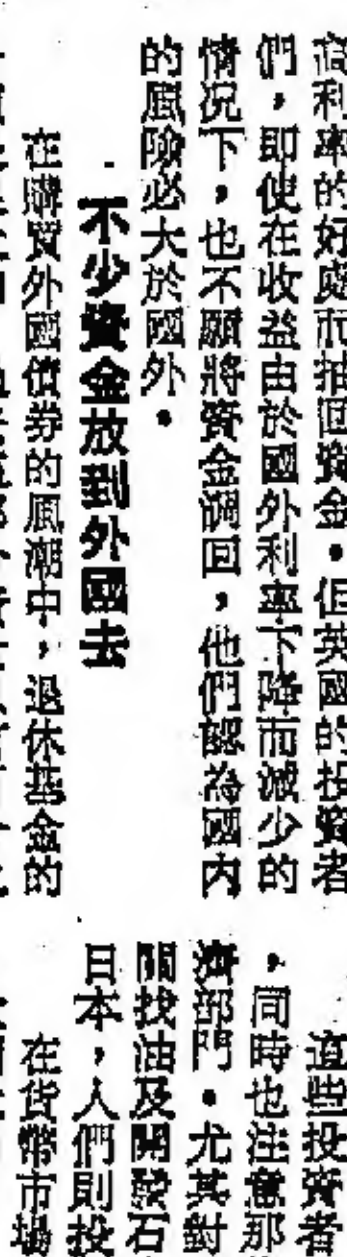 高利率的好處而抽回資金。但英國的投資者
們，即使在收益由於國外利率下降而減少的
情况下，也不願將資金調回，他們認為國内
的風險必大於國外。
不少資金放到外國去
在購買外國債券的風潮中，退休基金的
這些投資者
，同時也注意那
濟部門。尤其對
關找油及開發石
日本，人們則投
在貨幣市場